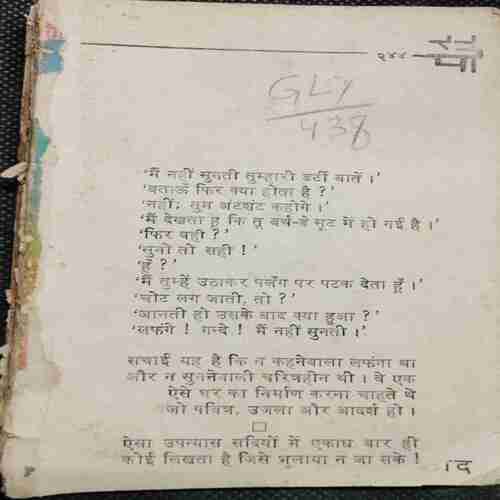 २४८
GLY
438
‘मैं नहीं सुनती तुम्हारी डर्टी बातें ।’
‘बताऊँ फिर क्या होता है ?’
‘नहीं; तुम अंटशंट कहोगे ।’
‘मैं देखता हू कि तू बर्थ-डे सूट में हो गई है ।’
‘फिर वही ?’
‘सुनो तो सही !’
‘हूँ ?’
‘मैं तुम्हें उठाकर पलँग पर पटक देता हूँ ।’
‘चोट लग जाती, तो ?’
‘जानती हो उसके बाद क्या हुआ ?’
‘लफंगे ! गन्दे ! मैं नहीं सुनती ।’
सचाई यह है कि न कहनेवाला लफंगा था
और न सुननेवाली चरित्रहीन थी । वे एक
ऐसे घर का निर्माण करना चाहते थे
जो पवित्र, उजला और आदर्श हो ।
ऐसा उपन्यास सदियों में एकाध बार ही
कोई लिखता है जिसे भुलाया न जा सके !